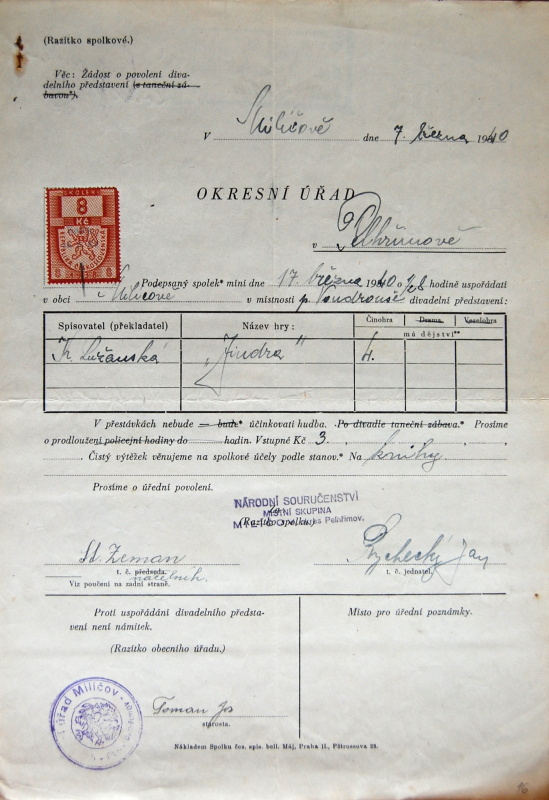 (Razítko spolkové.)
Věc: Žádost o povolení diva-
delního představení (s taneční zá-
bavou*).
V Miličově dne 7. března 1940
OKRESNÍ ÚŘAD
v Pelhřimově
KOLEK
8
Kč
8 8
Podepsaný spolek* míní dne 17 března 1940 o ½8 hodině uspořádati
v obci Miličově v místnosti p. Vondrouše divadelní představení:
Spisovatel (překladatel) Název hry: Činohra Drama Veselohra
má dějství**
Lužanská „Jindra" 4.
V přestávkách nebude — bude* účinkovati hudba. Po divadle taneční zábava.* Prosíme
o prodloužení policejní hodiny do hodin. Vstupné Kč 3
Čistý výtěžek věnujeme na spolkové účely podle stanov.* Na knihy
Prosíme o úřední povolení.
NÁRODNÍ SOURUČENSTVÍ
MÍSTNÍ SKUPINA
(Razítko spolku.)
Pelhřimov.
St. Zeman Rychecký Jan
t. č. předseda. t. č. jednatel.
náčelník.
Viz poučení na zadní straně.
Proti uspořádání divadelního předsta-
vení není námitek.
(Razítko obecního úřadu.)
Místo pro úřední poznámky.
úřad Miličov
Zeman Jos
starosta.
Nákladem Spolku čes. spis. bell. Máj, Praha II., Pštrossova 23.